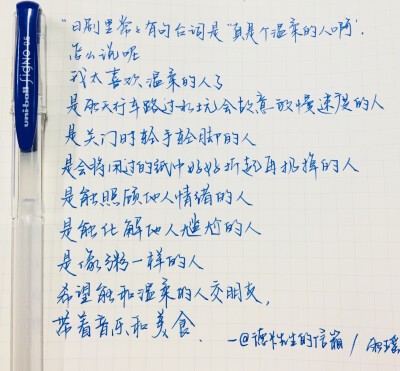 "日剧里常常有句台词是"真是个温柔的人啊".
怎么说呢
我太喜欢温柔的人了
是雨天行车路过水坑会放慢速度的人
是关门时轻手轻脚的人
是会将用过的纸巾好好折起再扔掉的人
是能照顾他人情绪的人
是能化解他人尴尬的人
是像粥一样的人
希望能和温柔的人交朋友,
带着音乐和美食.
一@德卡先生的信箱 /
uni-ball Signo 0.5